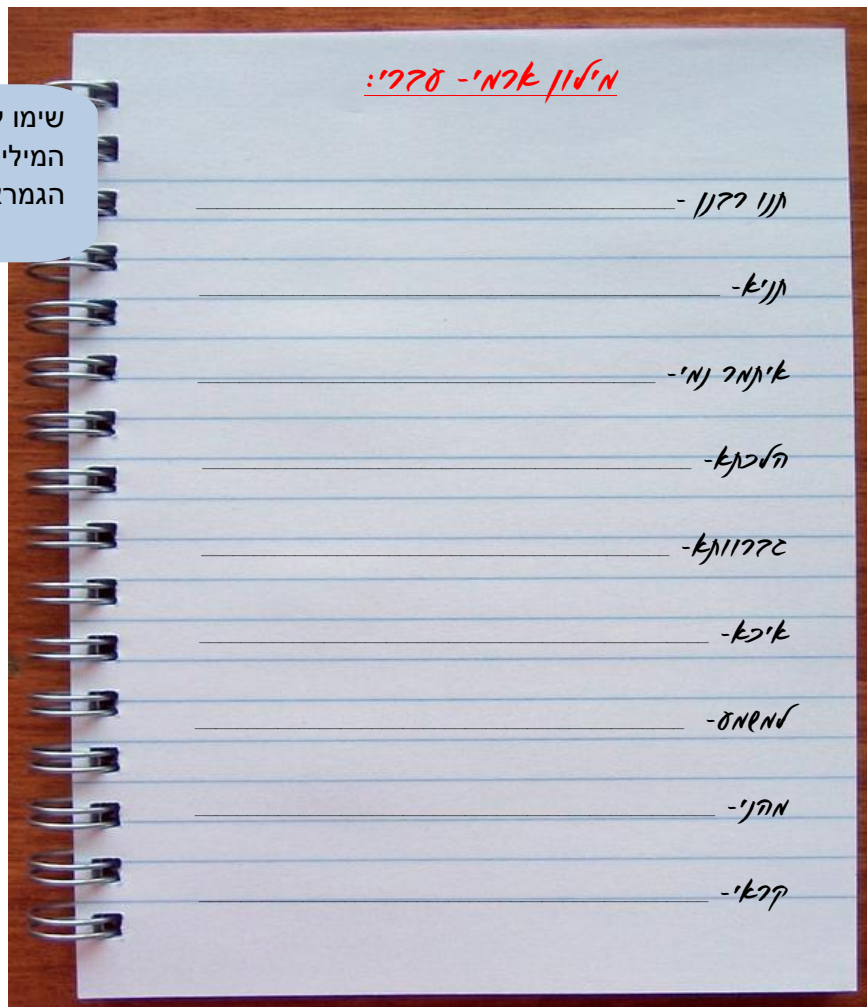 מילון ארמי- עברי:
שימו
המילי
הגמר
תנו רבנן -
תניא-
איתמר נמי-
הלכתא-
גברוותא-
איכא-
למשמע-
מהני-
קראי-